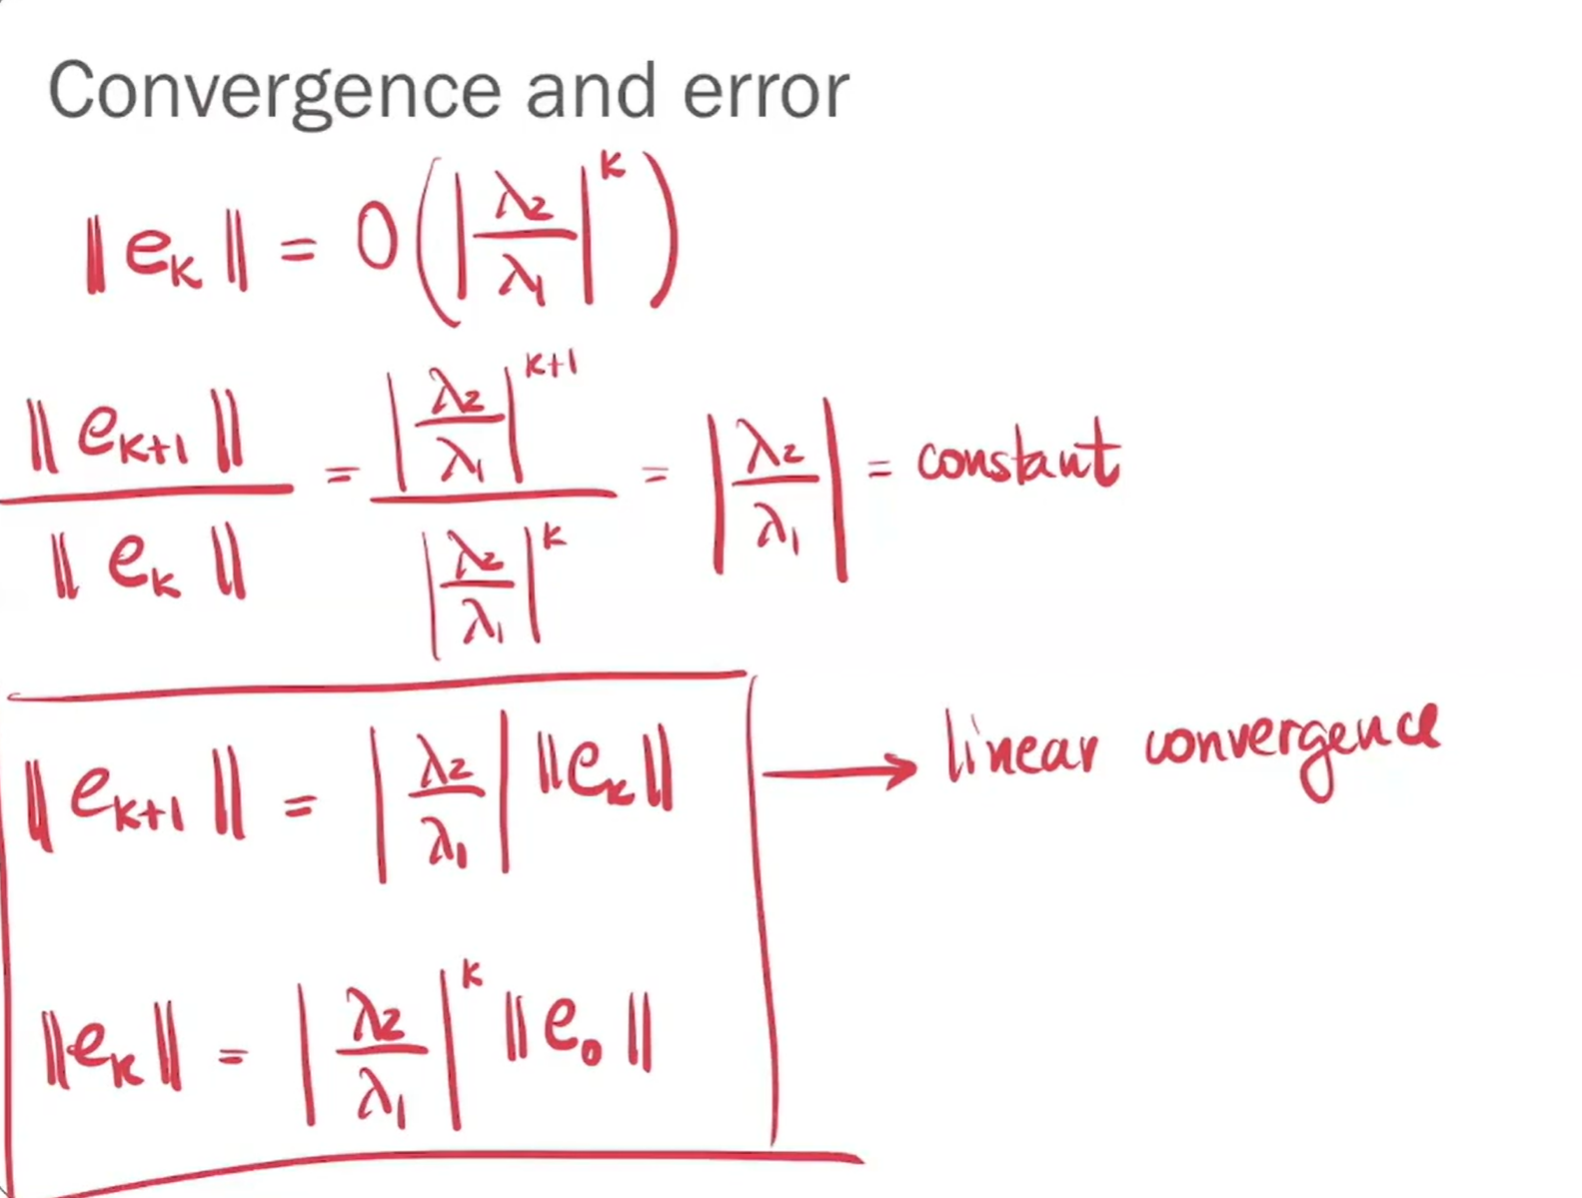 Convergence and error
‖e_k‖ = O(|λ₂/λ₁|^k)
‖e_{k+1}‖/‖e_k‖ = |λ₂/λ₁|^{k+1}/|λ₂/λ₁|^k = |λ₂/λ₁| = constant
‖e_{k+1}‖ = |λ₂/λ₁| ‖e_k‖ → linear convergence
‖e_k‖ = |λ₂/λ₁|^k ‖e₀‖